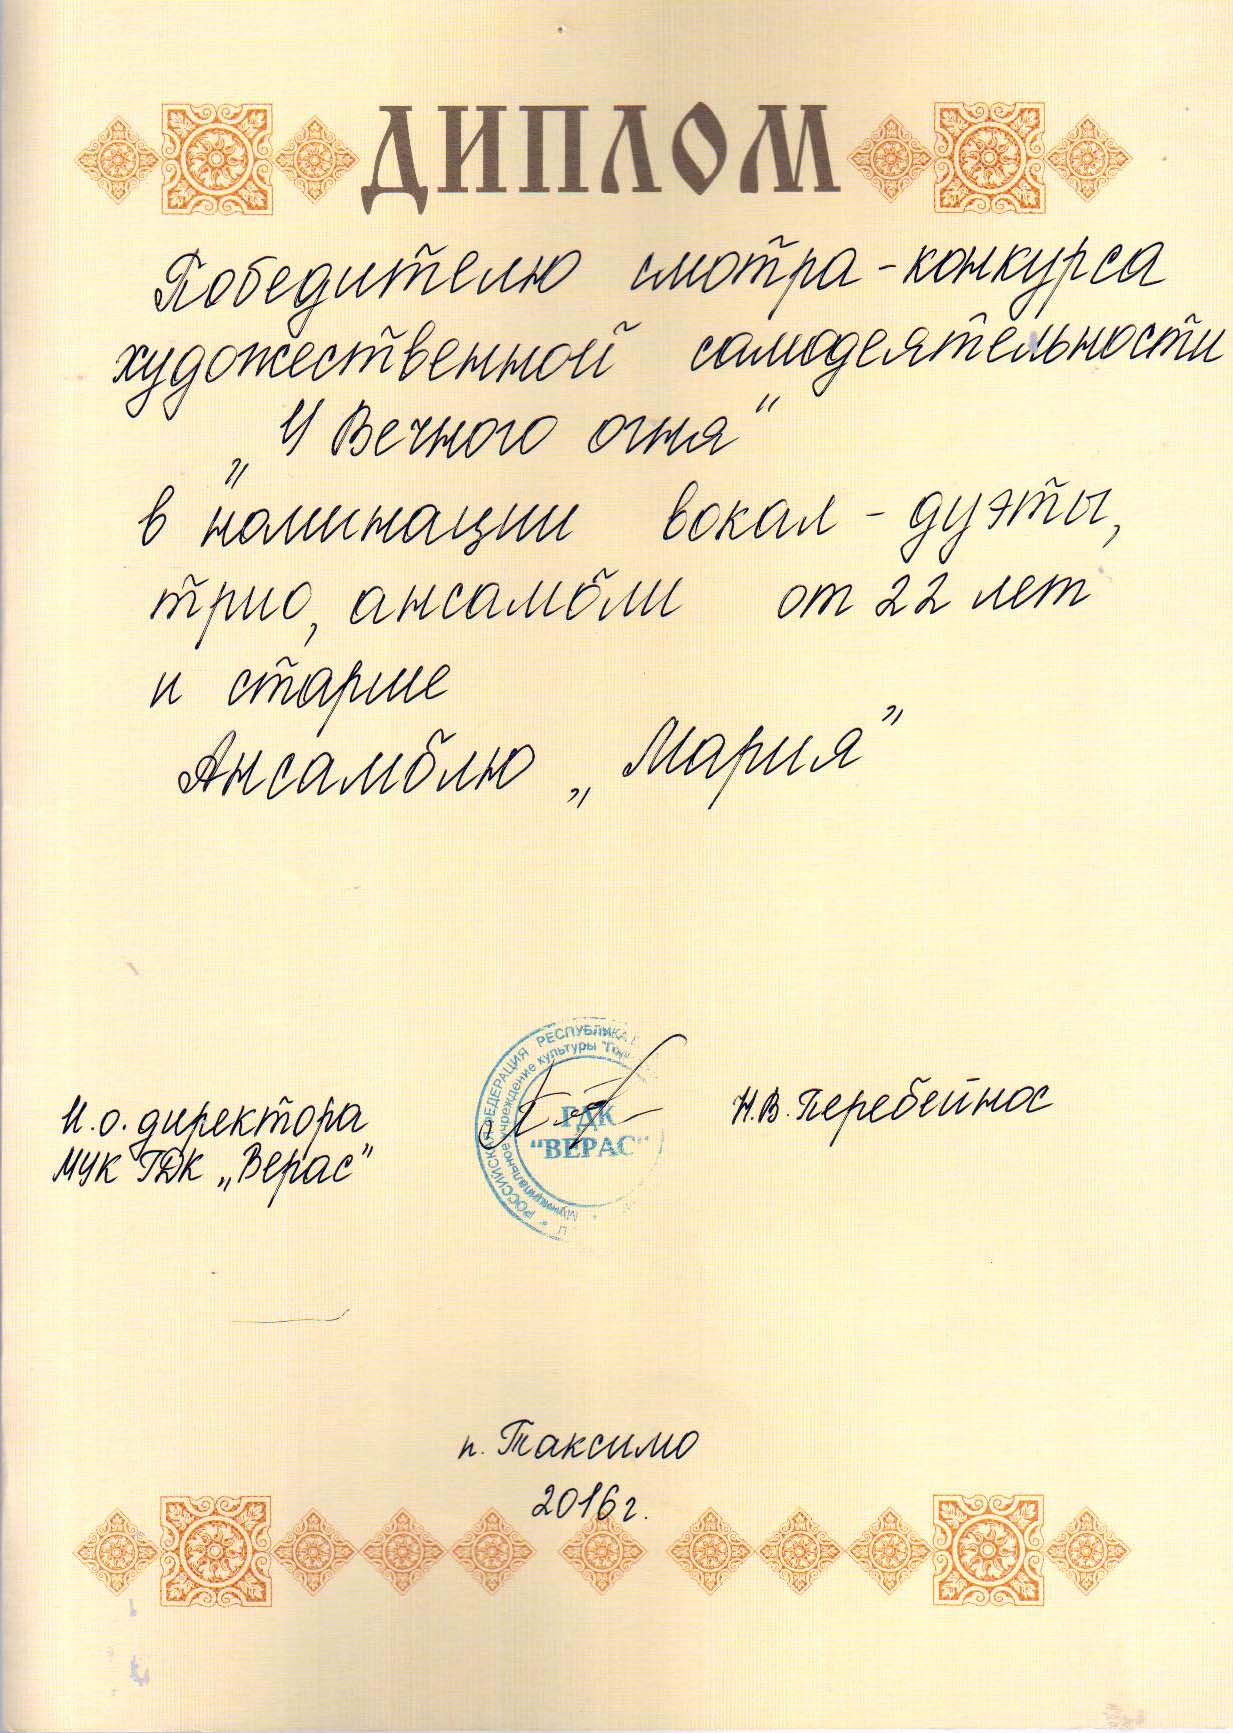 ДИПЛОМ
Победителю смотра-конкурса
художественной самодеятельности
„У Вечного огня“
в номинации вокал - дуэты,
трио, ансамбли от 22 лет
и старше
Ансамблю „Мария”
И.о. директора
МУК ГДК „Верас”
Н.В. Перебейнос
РОССИЙСКАЯ ФЕДЕРАЦИЯ РЕСПУБЛИКА
Муниципальное учреждение культуры
РДК
"ВЕРАС"
п. Таксимо
2016 г.